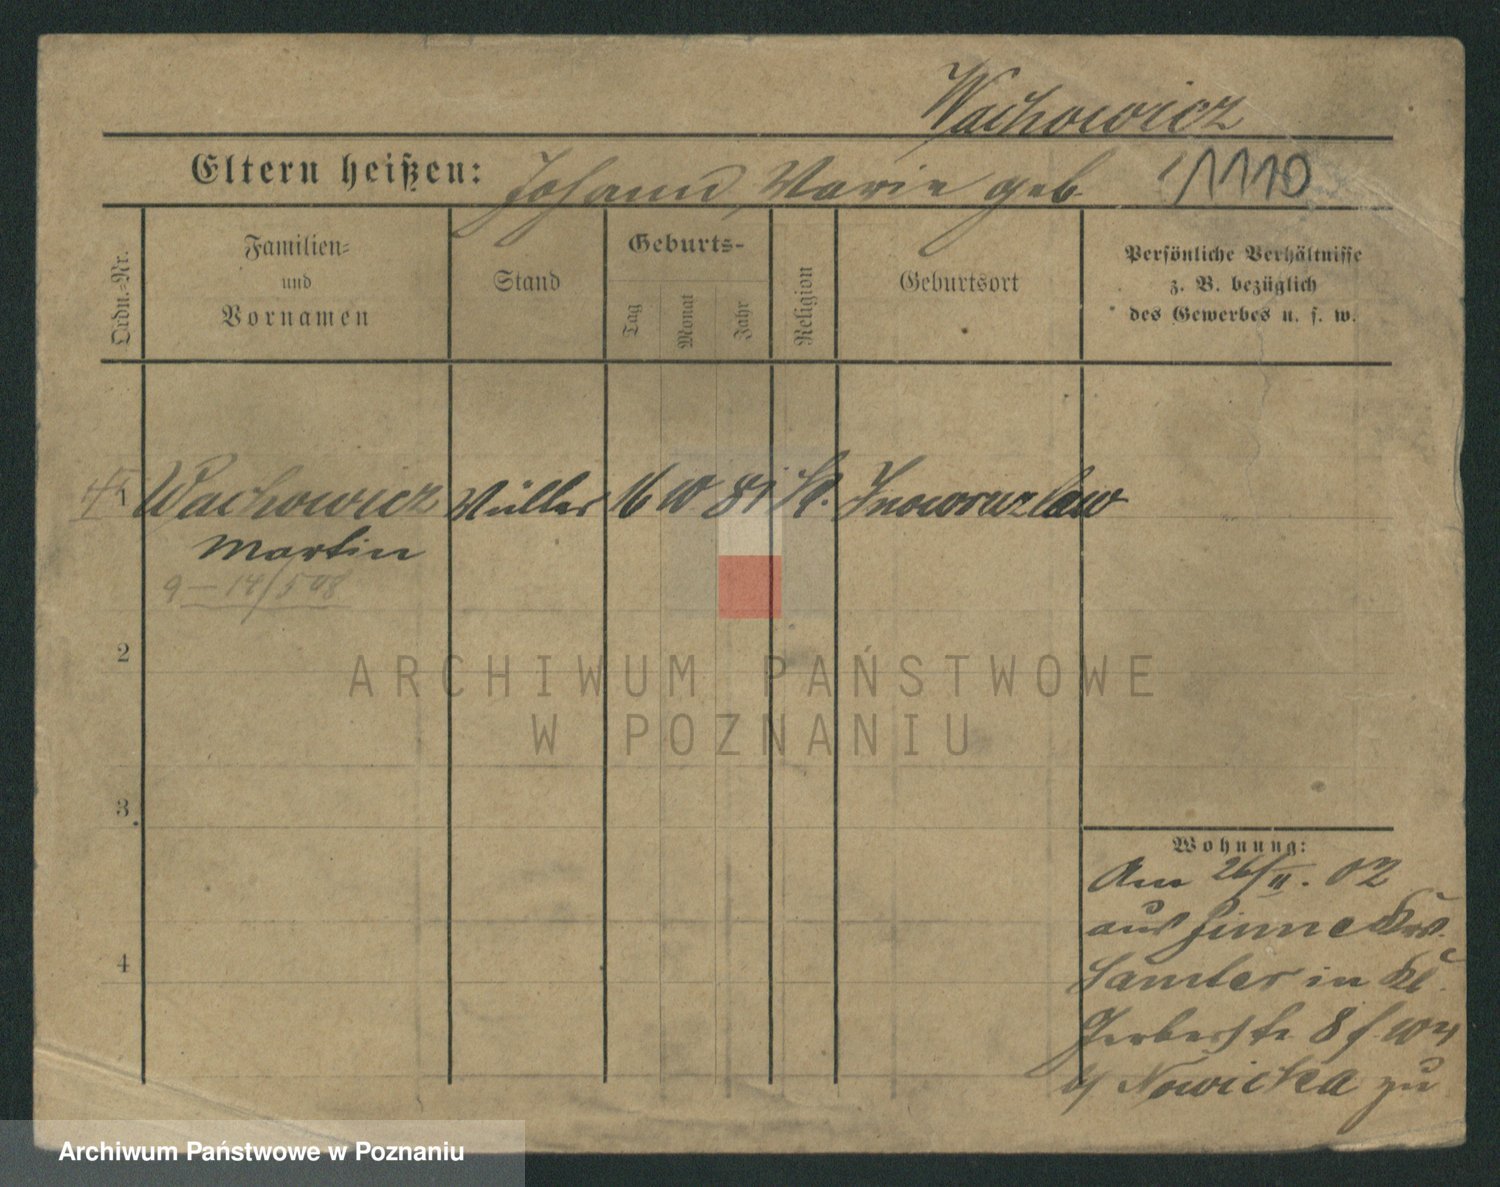 Wachowicz
Eltern heißen: Johann, Marie geb 1110
Ordn.-Nr.
Familien-
und
Vornamen
Stand
Geburts-
Tag
Monat
Jahr
Religion
Geburtsort
Persönliche Verhältnisse
z. B. bezüglich
des Gewerbes u. s. w.
1 Wachowicz Müller 16 10 81 K. Inowrazlaw
Martin
9-14/508
2
ARCHIWUM PAŃSTWOWE
W POZNANIU
3
4
Wohnung:
Am 26/II. 02
aus Pinne Krs.
Samter in Kl.
Gerberstr. 8 f. W 4
b/ Nowicka zu
Archiwum Państwowe w Poznaniu